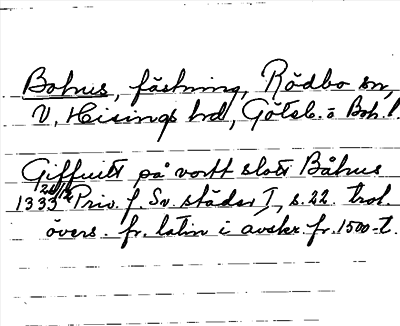 Bohus, fästning, Rödbo sn,
V. Hisings hd, Göteb. o Boh. l.
Giffuitt på vortt slott Båhus
1333 Priv. f. Sv. städer I, s. 22. trol.
övers. fr. latin i avskr. fr. 1500-t.